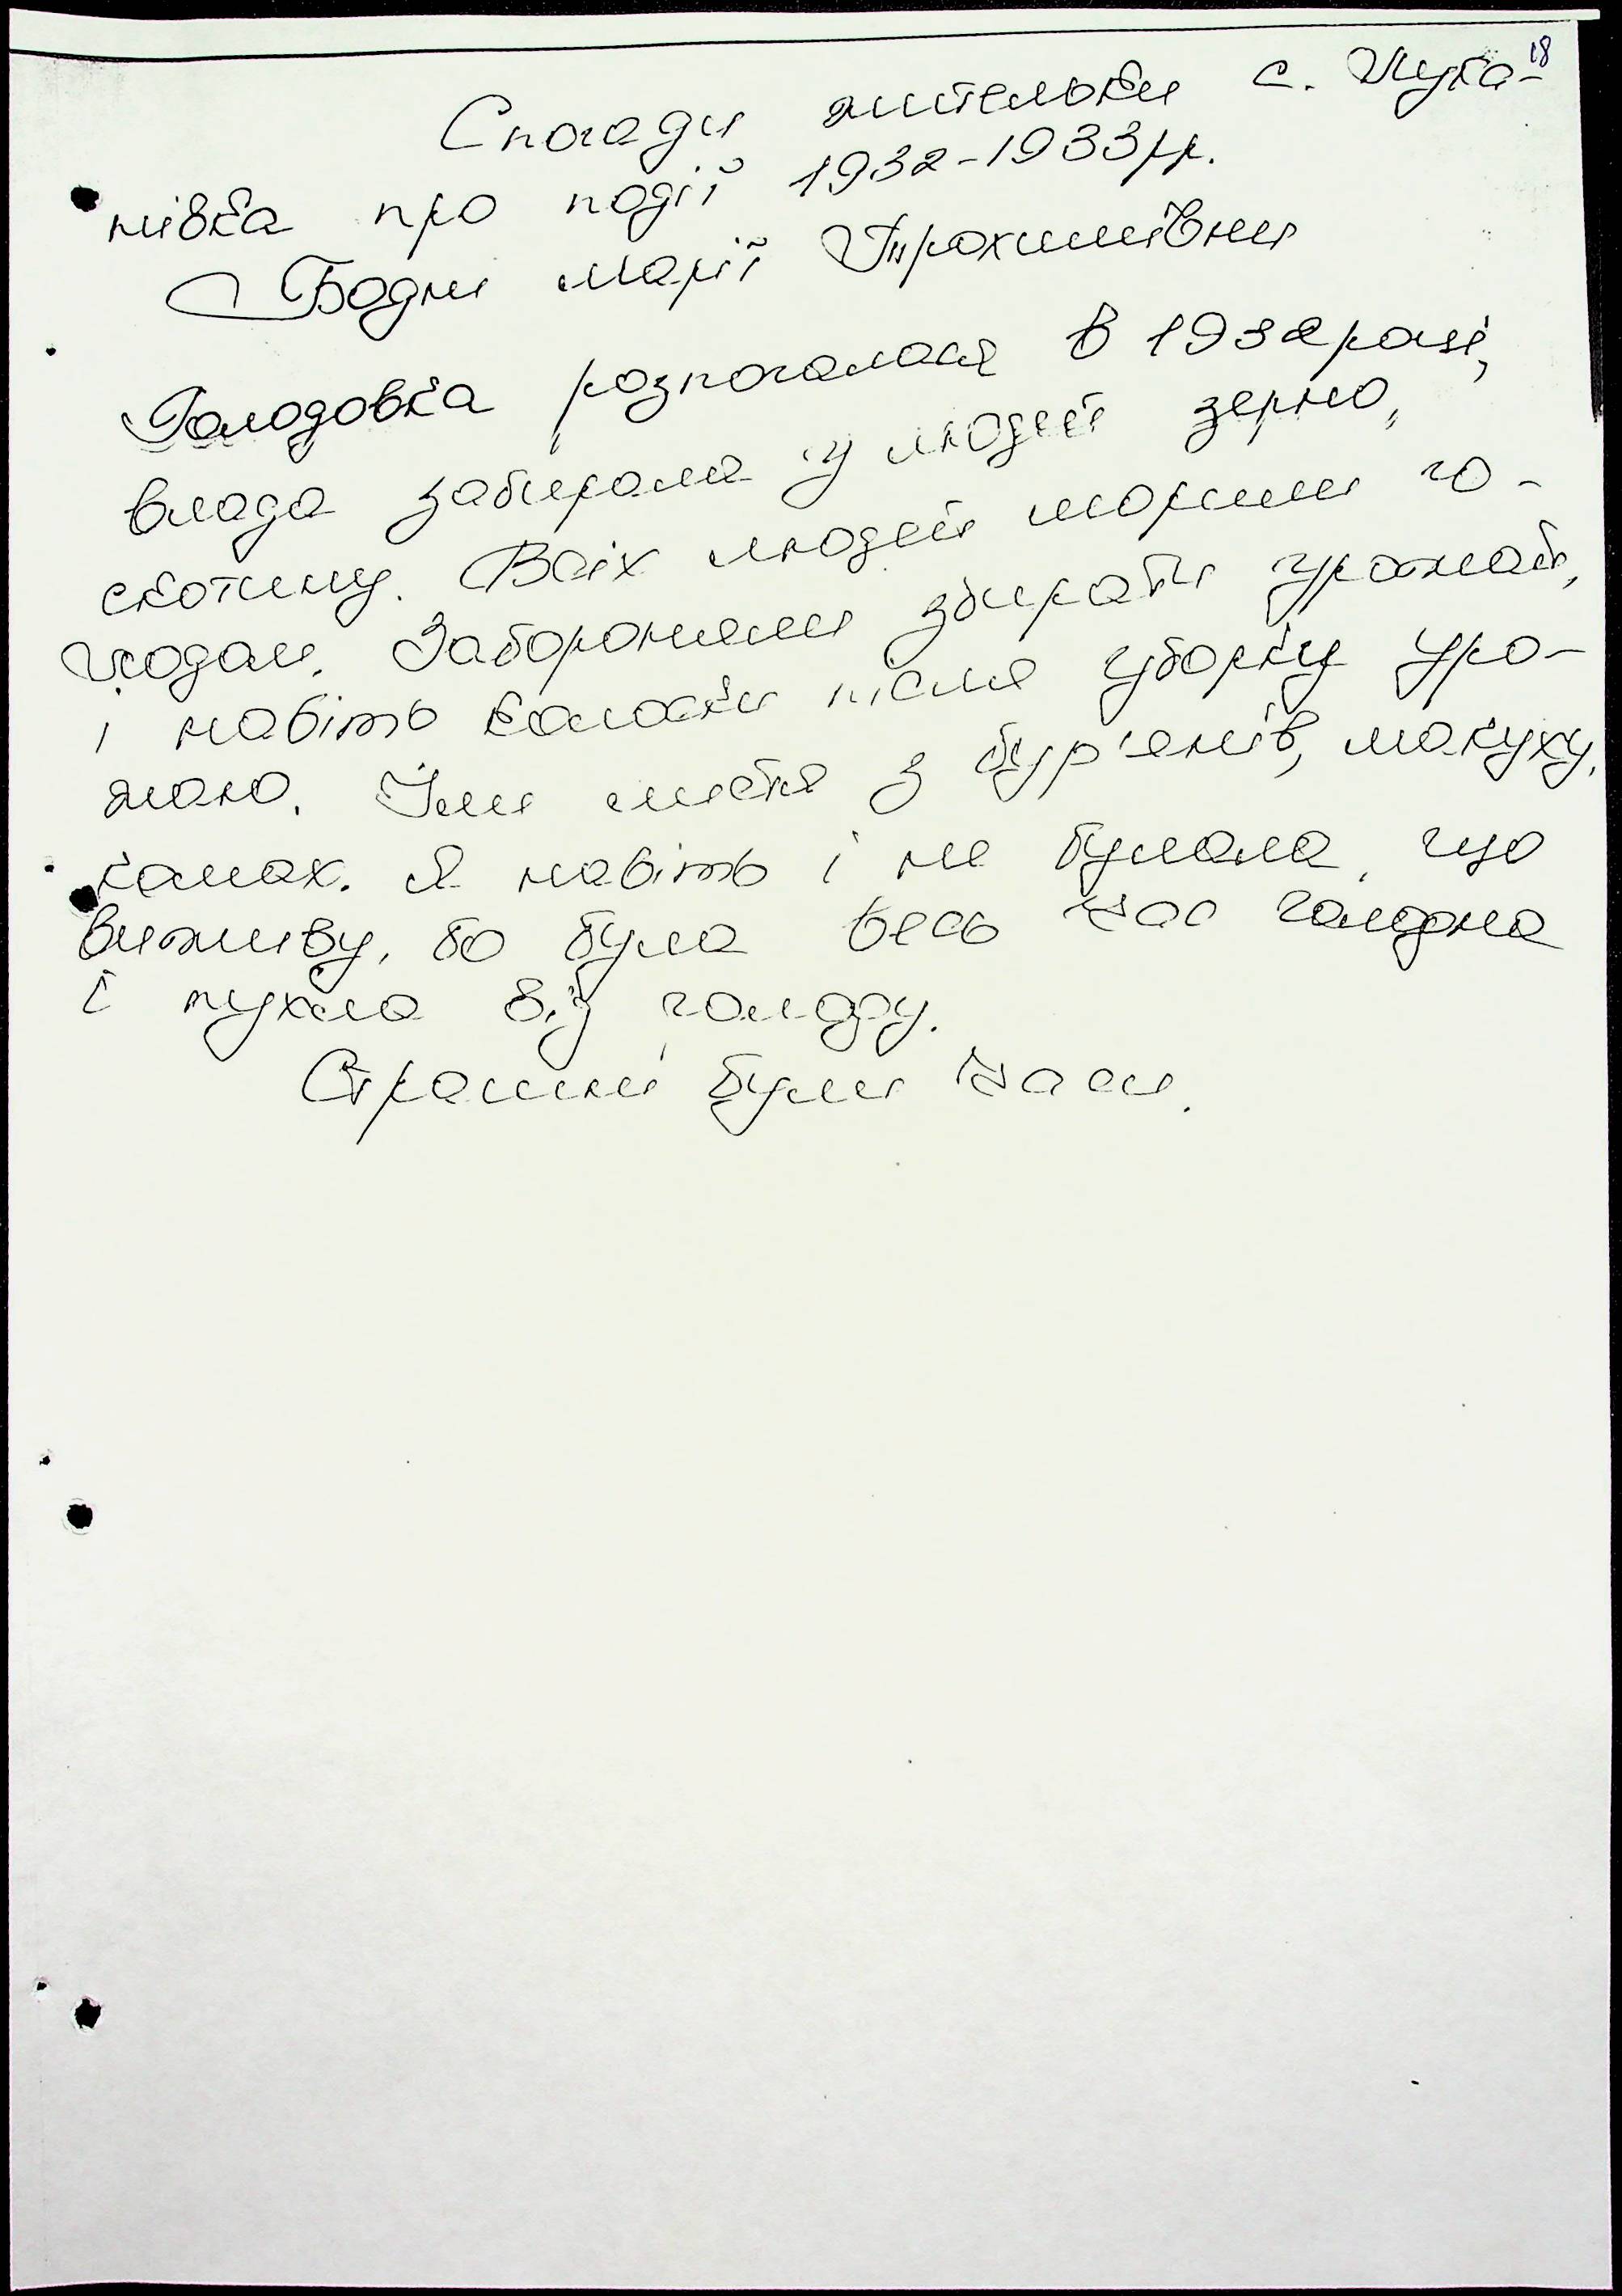 18
Спогади жительки с. Жука-
нівка про події 1932-1933 рр.
Бодни Марії Трохимівни
Голодовка розпочалася в 1932 році,
влада забирала у людей зерно,
скотину. Всіх людей морили го-
лодом. Заборонили збирати урожай,
і навіть колоски після уборки уро-
жаю. Їли листя з бур'янів, макуху,
качан. Я навіть і не думала, що
виживу, бо була весь час голодна
і пухла від голоду.
Страшні були часи.